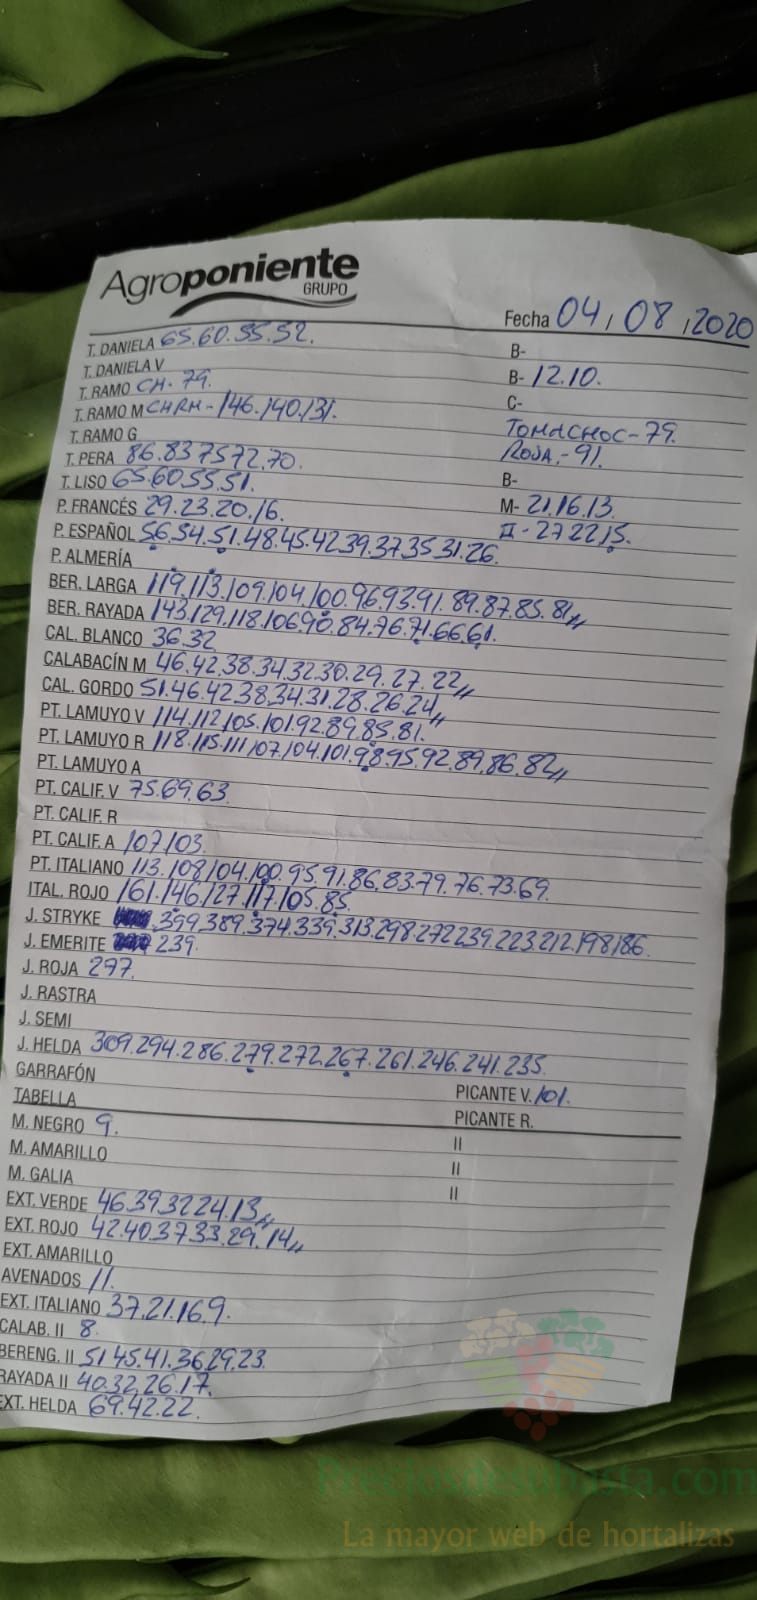 Agroponiente
GRUPO
Fecha 04/08/2020
T. DANIELA 65.60.55.52.
B-
T. DANIELA V
B- 12.10.
T. RAMO CH. 79.
C-
T. RAMO M CHRM-146.140.131.
TOMACHOC-79.
T. RAMO G
ROJA.-91.
T. PERA 86.83.75.72.70.
B-
T. LISO 65.60.55.51.
M- 21.16.13.
P. FRANCÉS 29.23.20.16.
II - 27.22.15.
P. ESPAÑOL 56.54.51.48.45.42.39.37.35.31.26.
P. ALMERÍA
BER. LARGA 119.113.109.104.100.96.93.91.89.87.85.81,,
BER. RAYADA 143.129.118.106.90.84.76.71.66.61.
CAL. BLANCO 36.32
CALABACÍN M 46.42.38.34.32.30.29.27.22,,
CAL. GORDO 51.46.42.38.34.31.28.26.24,,
PT. LAMUYO V 114.112.105.101.92.89.85.81.
PT. LAMUYO R 118.115.111.107.104.101.98.95.92.89.86.82,,
PT. LAMUYO A
PT. CALIF. V 75.69.63.
PT. CALIF. R
PT. CALIF. A 107.103.
PT. ITALIANO 113.108.104.100.95.91.86.83.79.76.73.69.
ITAL. ROJO 161.146.127.117.105.85.
J. STRYKE 399.389.374.339.313.298.272.239.223.212.198.186.
J. EMERITE 239.
J. ROJA 297.
J. RASTRA
J. SEMI
J. HELDA 309.294.286.279.272.267.261.246.241.235.
GARRAFÓN
PICANTE V. 101.
TABELLA
PICANTE R.
M. NEGRO 9.
II
M. AMARILLO
II
M. GALIA
II
EXT. VERDE 46.39.32.24.13,,
EXT. ROJO 42.40.37.33.29.14,,
EXT. AMARILLO
AVENADOS 11.
EXT. ITALIANO 37.21.16.9.
CALAB. II 8.
BERENG. II 51.45.41.36.29.23.
RAYADA II 40.32.26.17.
EXT. HELDA 69.42.22.
Preciosdesubasta.com
La mayor web de hortalizas